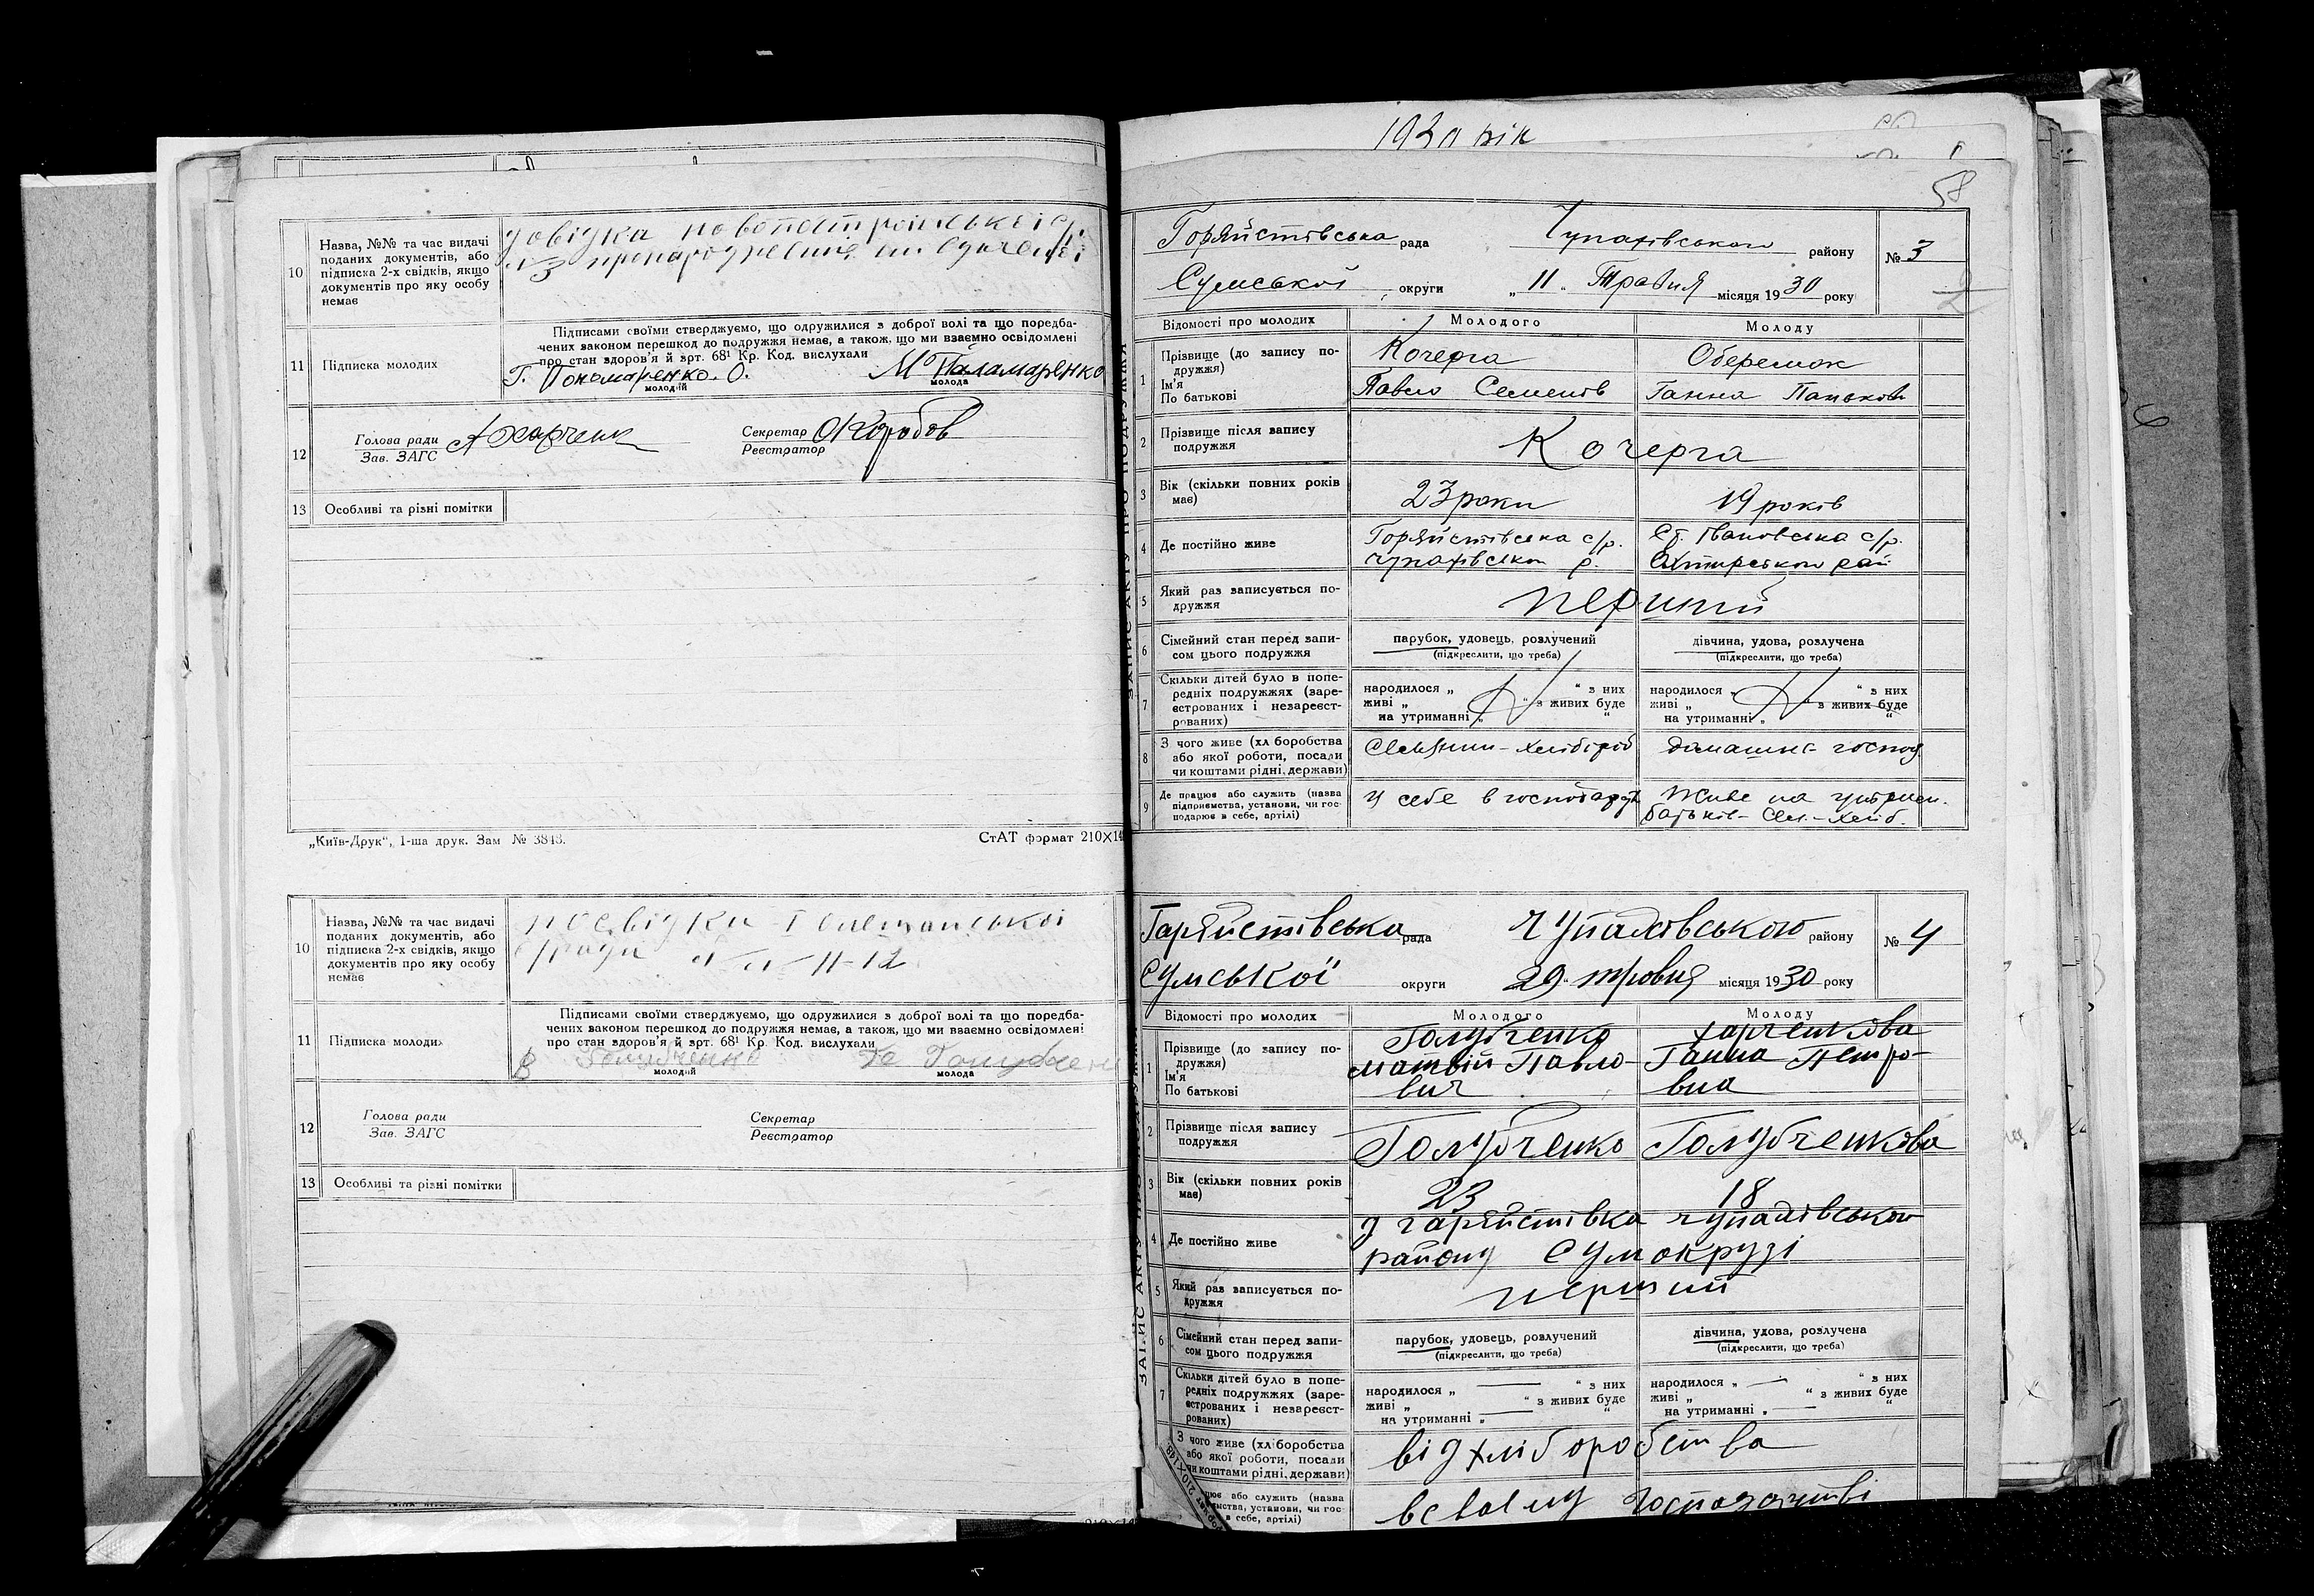 10 Назва, №№ та час видачі
поданих документів, або
підписка 2-х свідків, якщо
документів про яку особу
немає
довідка
№ 3
11 Підписка молодих
Підписами своїми стверджуємо, що одружилися з доброї волі та що поредба-
чених законом перешкод до подружжя немає, а також, що ми взаємно освідомлені
про стан здоров'я й зрт. 68¹ Кр. Код. вислухали
Г. Пономаренко. О. М Паламаренко
молодий молода
12 Голова ради А Харченко Секретар О Коробов
Зав. ЗАГС Реєстратор
13 Особливі та різні помітки
„Київ-Друк“, 1-ша друк. Зам № 3843. СтАТ формат 210×14
10 Назва, №№ та час видачі
поданих документів, або
підписка 2-х свідків, якщо
документів про яку особу
немає
посвідки
№ 11-12
11 Підписка молодих
Підписами своїми стверджуємо, що одружилися з доброї волі та що поредба-
чених законом перешкод до подружжя немає, а також, що ми взаємно освідомлені
про стан здоров'я й зрт. 68¹ Кр. Код. вислухали
В Голубченко Га Голубчен
молодий молода
12 Голова ради Секретар
Зав. ЗАГС Реєстратор
13 Особливі та різні помітки
1930 рік
58
Горяйстівська рада Чупахівського району № 3
Сумської округи „ 11 „ Травня місяця 1930 року
2
Відомості про молодих Молодого Молоду
1 Прізвище (до запису по-
дружжя)
Ім'я
По батькові
Кочерга Оберемок
Павло Семенів Ганна Панькова
2 Прізвище після запису
подружжя
Кочерга
3 Вік (скільки повних років
має)
23 роки 19 років
4 Де постійно живе
Горяйстівська с/р. Ст. Івановська с/р.
Чупахівськ р. Охтирськ рай
5 Який раз записується по-
дружжя
перший
6 Сімейний стан перед запи-
сом цього подружжя
парубок, удовець, розлучений дівчина, удова, розлучена
(підкреслити, що треба) (підкреслити, що треба)
7 Скільки дітей було в попе-
редніх подружжях (заре-
єстрованих і незареєст-
рованих)
народилося „ “ з них народилося „ “ з них
живі „ “ з живих буде живі „ “ з живих буде
на утриманні „ “ на утриманні „ “
8 З чого живе (хліборобства
або якої роботи, посади
чи коштами рідні, держави)
Селянин - хлібороб домашнє господ.
9 Де працює або служить (назва
підприємства, установи, чи гос-
подарює в себе, артілі)
У себе в господар Живе на утриман.
батьків - Сел. - хліб.
Горяйстівська рада Чупахівського району № 4
Сумської округи 29 травня місяця 1930 року
Відомості про молодих Молодого Молоду
1 Прізвище (до запису по-
дружжя)
Ім'я
По батькові
Голубченко Харченкова
Матвій Павло- Ганна Петро-
вич вна
2 Прізвище після запису
подружжя
Голубченко Голубченкова
3 Вік (скільки повних років
має)
23 18
4 Де постійно живе
Горяйстівка Чупахівського
району Сумокрузі
5 Який раз записується по-
дружжя
перший
6 Сімейний стан перед запи-
сом цього подружжя
парубок, удовець, розлучений дівчина, удова, розлучена
(підкреслити, що треба) (підкреслити, що треба)
7 Скільки дітей було в попе-
редніх подружжях (заре-
єстрованих і незареєст-
рованих)
народилося „ “ з них народилося „ “ з них
живі „ “ з живих буде живі „ “ з живих буде
на утриманні „ “ на утриманні „ “
З чого живе (хліборобства
або якої роботи, посади
чи коштами рідні, держави)
від хліборобства
або служить (назва
установи, чи гос-
в себе, артілі)
в своему господарстві